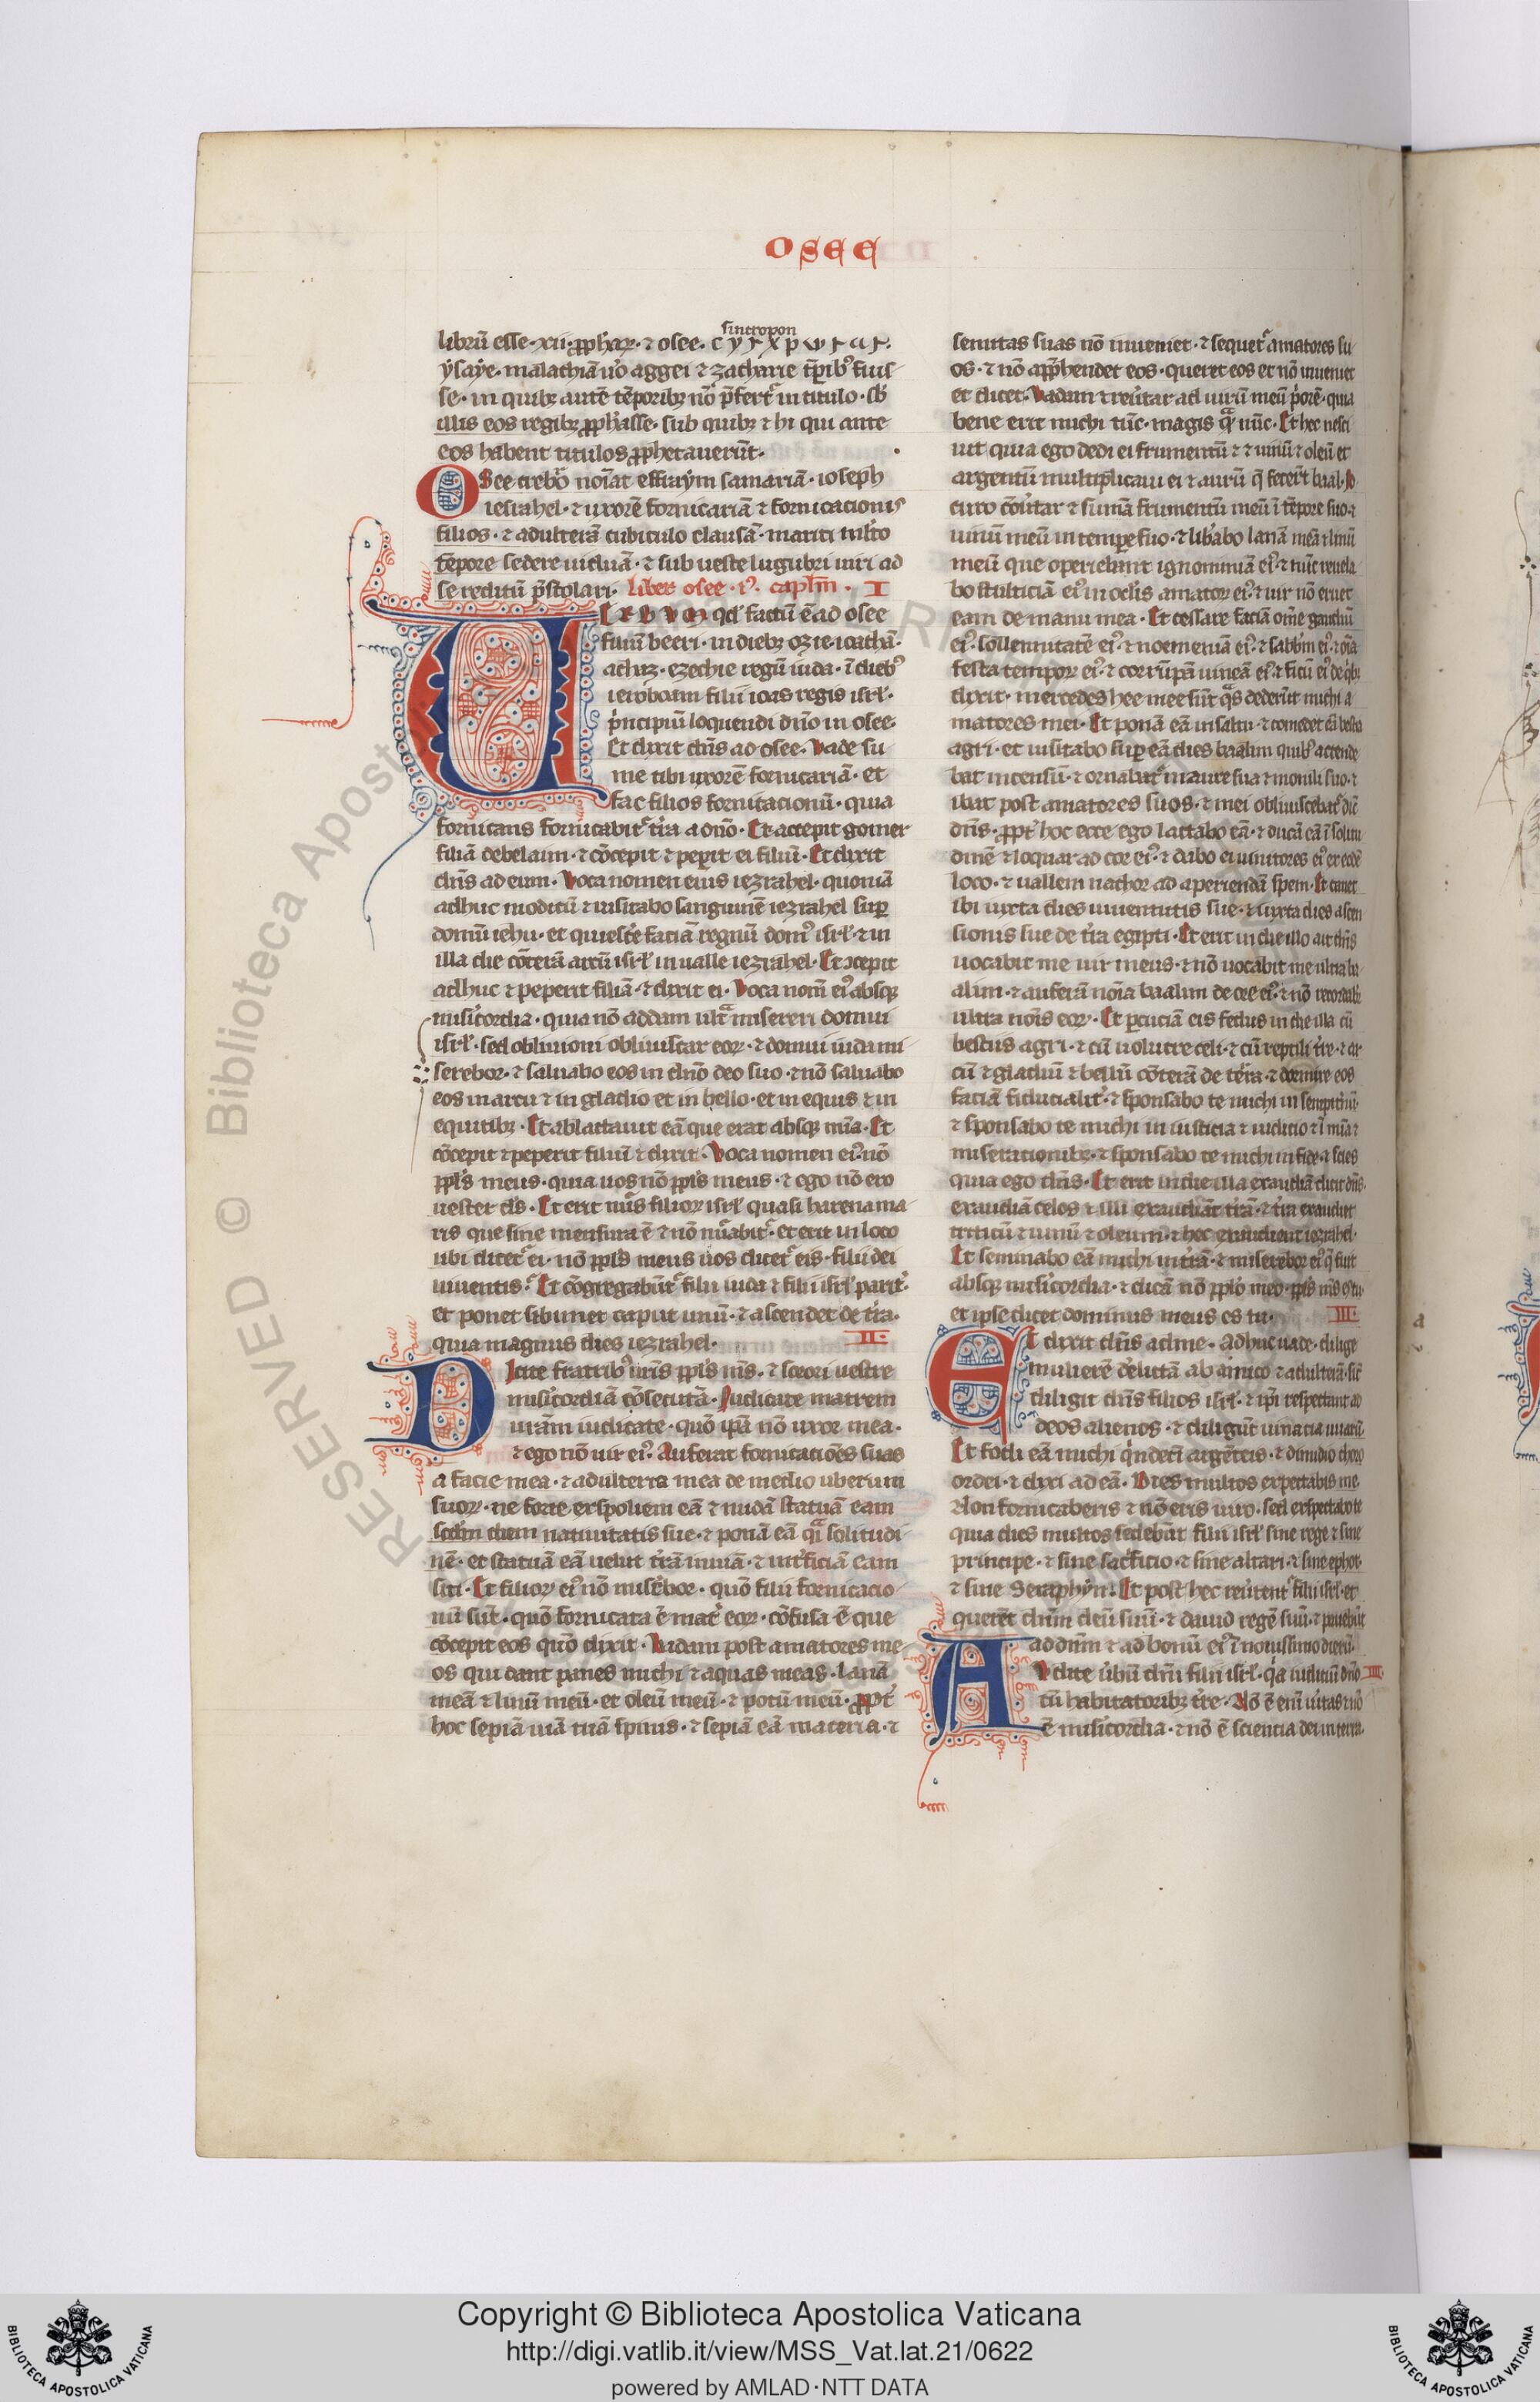 OSEE
sincropon
librū esse xii ꝓphaꝝ ⁊ osee. cyyxpwyay.
ysaye. malachiā uo aggei ⁊ zacharie tꝑibꝰ fuis
se. in quibꝫ autē tēporibꝫ nō p̄fert᷑ in titulo. sb
illis eos regibꝫ ꝓphasse. sub quibꝫ ⁊ hi qui ante
eos habent titulos ꝓphetauerūt.
OSee crebo noīat effraym samariā. ioseph
iesrahel. ⁊ uxorē fornicariā ⁊ fornicacionis
filios. ⁊ adulterā cubiculo clausā. mariti mlto
tēpore sedere uiduā. ⁊ sub ueste lugubri uiri ad
se reditū p̄stolari. liber osee. capl̄m. I
UERBUM qd factū ē ad osee
filiū beeri. in diebꝫ ozie. ioathā.
achaz. ezechie regū iuda. ī diebꝰ
ieroboam filii ioas regis isrl.
pncipiū loquendi dn̄o in osee.
Et dixit dn̄s ad osee. Vade su
me tibi uxorē fornicariā. et
fac filios fornicacionū. quia
fornicans fornicabit᷑ tra a dn̄o. Et accepit gomer
filiā debelaim. ⁊ cōcepit ⁊ peꝑit ei filiū. Et dixit
dn̄s ad eum. Voca nomen eius iezrahel. quoniā
adhuc modicū ⁊ uisitabo sanguinē iezrahel suꝑ
domū iehu. et quiescē faciā regnū domꝰ isrl. ⁊ in
illa die cōterā arcū isrl in ualle iezrahel. Et ꝯcepit
adhuc ⁊ peperit filiā. ⁊ dixit ei. Voca nom̄ eiꝰ absqꝫ
misicordia. quia nō addam ult᷑ misereri domui
isrl. sed obliuioni obliuiscar eoꝝ. ⁊ domui iuda mi
serebor. ⁊ saluabo eos in dn̄o deo suo. ⁊ nō saluabo
eos in arcu ⁊ in gladio et in bello. et in equis ⁊ in
equitibꝫ. Et ablactauit eā que erat absqꝫ mīa. Et
cōcepit ⁊ peperit filiū ⁊ dixit. Voca nomen eiꝰ. nō
ppls meus. quia uos nō ppls meus. ⁊ ego nō ero
uester ds. Et erit nūs filioꝝ isrl quasi harena ma
ris que sine mensura ē ⁊ nō nūabit᷑. et erit in loco
ubi dicet᷑ ei. nō ppls meus uos dicet᷑ eis. filii dei
uiuentis. Et cōgregabūt᷑ filii iuda ⁊ filii isrl parit.
et ponet sibimet caput unū. ⁊ ascendet de tra.
quia magnus dies iezrahel. II.
Dicite fratribꝰ uris ppls ms. ⁊ sorori uestre
misicordiā cōsecutā. Iudicate matrem
uram iudicate. quō ip̄a nō uxor mea.
⁊ ego nō uir eiꝰ. Auferat fornicatiōes suas
a facie mea. ⁊ adulteria mea de medio uberum
suoꝝ. ne forte exspoliem eā ⁊ nudā statuā eam
scdm diem natiuitatis sue. ⁊ ponā eā qi solitudi
nē. et statuā eā uelut trā inuiā. ⁊ intficiā eam
siti. Et filioꝝ eiꝰ nō misebor. quō filii fornicacio
nū sūt. quō fornicata ē mat eoꝝ. cōfusa ē que
cōcepit eos quō dixit. Vadam post amatores me
os qui dant panes michi ⁊ aquas meas. lanā
meā ⁊ linū meū. et oleū meū. ⁊ potū meū. ꝓpt
hoc sepiā uiā tuā spinis. ⁊ sepiā eā maceria. ⁊
semitas suas nō inueniet. ⁊ sequet᷑ amatores su
os. ⁊ nō app̄hendet eos. queret eos et nō inueniet
et dicet. Vadam ⁊ reūtar ad uirū meū porē. quia
bene erit michi tūc. magis qͣ nūc. Et hec nesci
uit quia ego dedi ei frumentū ⁊ ⁊ uinū ⁊ oleū et
argentū multiplicaui ei ⁊ aurū q̄ fecert baal. Id
circo cōūtar ⁊ sumā frumentū meū ī tēpore suo. ⁊
uinū meū in tempe suo. ⁊ libabo lanā meā ⁊ linū
meū que operiebant ignominiā eiꝰ. ⁊ nūc reuela
bo stulticiā eiꝰ in oclis amatoꝝ eiꝰ. ⁊ uir nō eruet
eam de manu mea. Et cessare faciā om̄e gaudiū
eiꝰ. sollennitatē eiꝰ. ⁊ noemeniā eiꝰ. ⁊ sabbm eiꝰ. ⁊ oīa
festa tempoꝝ eiꝰ. ⁊ corrūpā uineā eiꝰ. ⁊ ficū eiꝰ de qbꝫ
dixit. mercedes hee mee sūt qͣs dederūt michi a
matores mei. Et ponā eā in saltū. ⁊ comedet eā bestia
agri. et uisitabo suꝑ eā dies baalim quibꝰ accende
bat incensū. ⁊ ornabat᷑ inaure sua ⁊ monili suo. ⁊
ibat post amatores suos. ⁊ mei obliuiscebat᷑ dic̄
dn̄s. ꝓpt hoc ecce ego lactabo eā. ⁊ ducā eā ī solitu
dinē ⁊ loquar ad cor eiꝰ. ⁊ dabo ei uinitores eiꝰ ex eodē
loco. ⁊ uallem uachor ad aperiendā spem. Et canet
ibi iuxta dies iuuentutis sue. ⁊ iuxta dies ascen
sionis sue de tra egipti. Et erit in die illo ait dn̄s
uocabit me uir meus. ⁊ nō uocabit me ultra ba
alim. ⁊ auferā noīa baalim de ore eiꝰ. ⁊ nō recordabit᷑
ultra nois eoꝝ. Et ꝑcuciā eis fedus in die illa cū
bestiis agri. ⁊ cū uolucre celi. ⁊ cū reptili tre. ⁊ ar
cū ⁊ gladiū ⁊ bellū cōterā de tera. ⁊ dormire eos
faciā fiducialit. ⁊ sponsabo te michi in sempitnū.
⁊ sponsabo te michi in iusticia ⁊ iudicio ⁊ ī mīa ⁊
miserationibꝫ. ⁊ sponsabo te michi in fide. ⁊ scies
quia ego dn̄s. Et erit in die illa exaudiā dicit dn̄s.
exaudiā celos ⁊ illi exaudiāt trā. ⁊ tra exaudiet
triticū ⁊ uinū ⁊ oleum. ⁊ hec exaudient iezrahel.
Et seminabo eā michi in trā. ⁊ miserebor eiꝰ q̄ fuit
absqꝫ misicordia. ⁊ dicā nō pplo meo. ppls ms es tu.
et ipse dicet dominus meus es tu. III.
Et dixit dn̄s ad me. Adhuc uade. dilige
mulierē dilectā ab amico ⁊ adulterā. sic̄
diligit dn̄s filios isrl. ⁊ ip̄i respectant ad
deos alienos. ⁊ diligūt uinacia uuaꝝ.
Et fodi eā michi qndeci argēteis. ⁊ dimidio choro
ordei. ⁊ dixi ad eā. Dies multos expectabis me.
Non fornicaberis ⁊ nō eris uiro. sed exspectabo te
quia dies multos sedebūt filii isrl sine rege ⁊ sine
principe. ⁊ sine sacficio ⁊ sine altari. ⁊ sine ephot.
⁊ sine Seraphyn. Et post hec reūtent᷑ filii isrl. et
querēt dn̄m deū suū. ⁊ dauid regē suū. ⁊ pauebūt
ad dn̄m ⁊ ad bonū eiꝰ ī nouissimo dieꝝ.
AVdite ūbū dn̄i filii isrl. qa iudiciū dn̄o IIII.
cū habitatoribꝫ tre. Nō ē eni ūitas ⁊ nō
ē misicordia. ⁊ nō ē sciencia dei in terra.
RESERVED © Biblioteca Apost
Copyright © Biblioteca Apostolica Vaticana
http://digi.vatlib.it/view/MSS_Vat.lat.21/0622
powered by AMLAD·NTT DATA
BIBLIOTECA APOSTOLICA VATICANA
BIBLIOTECA APOSTOLICA VATICANA